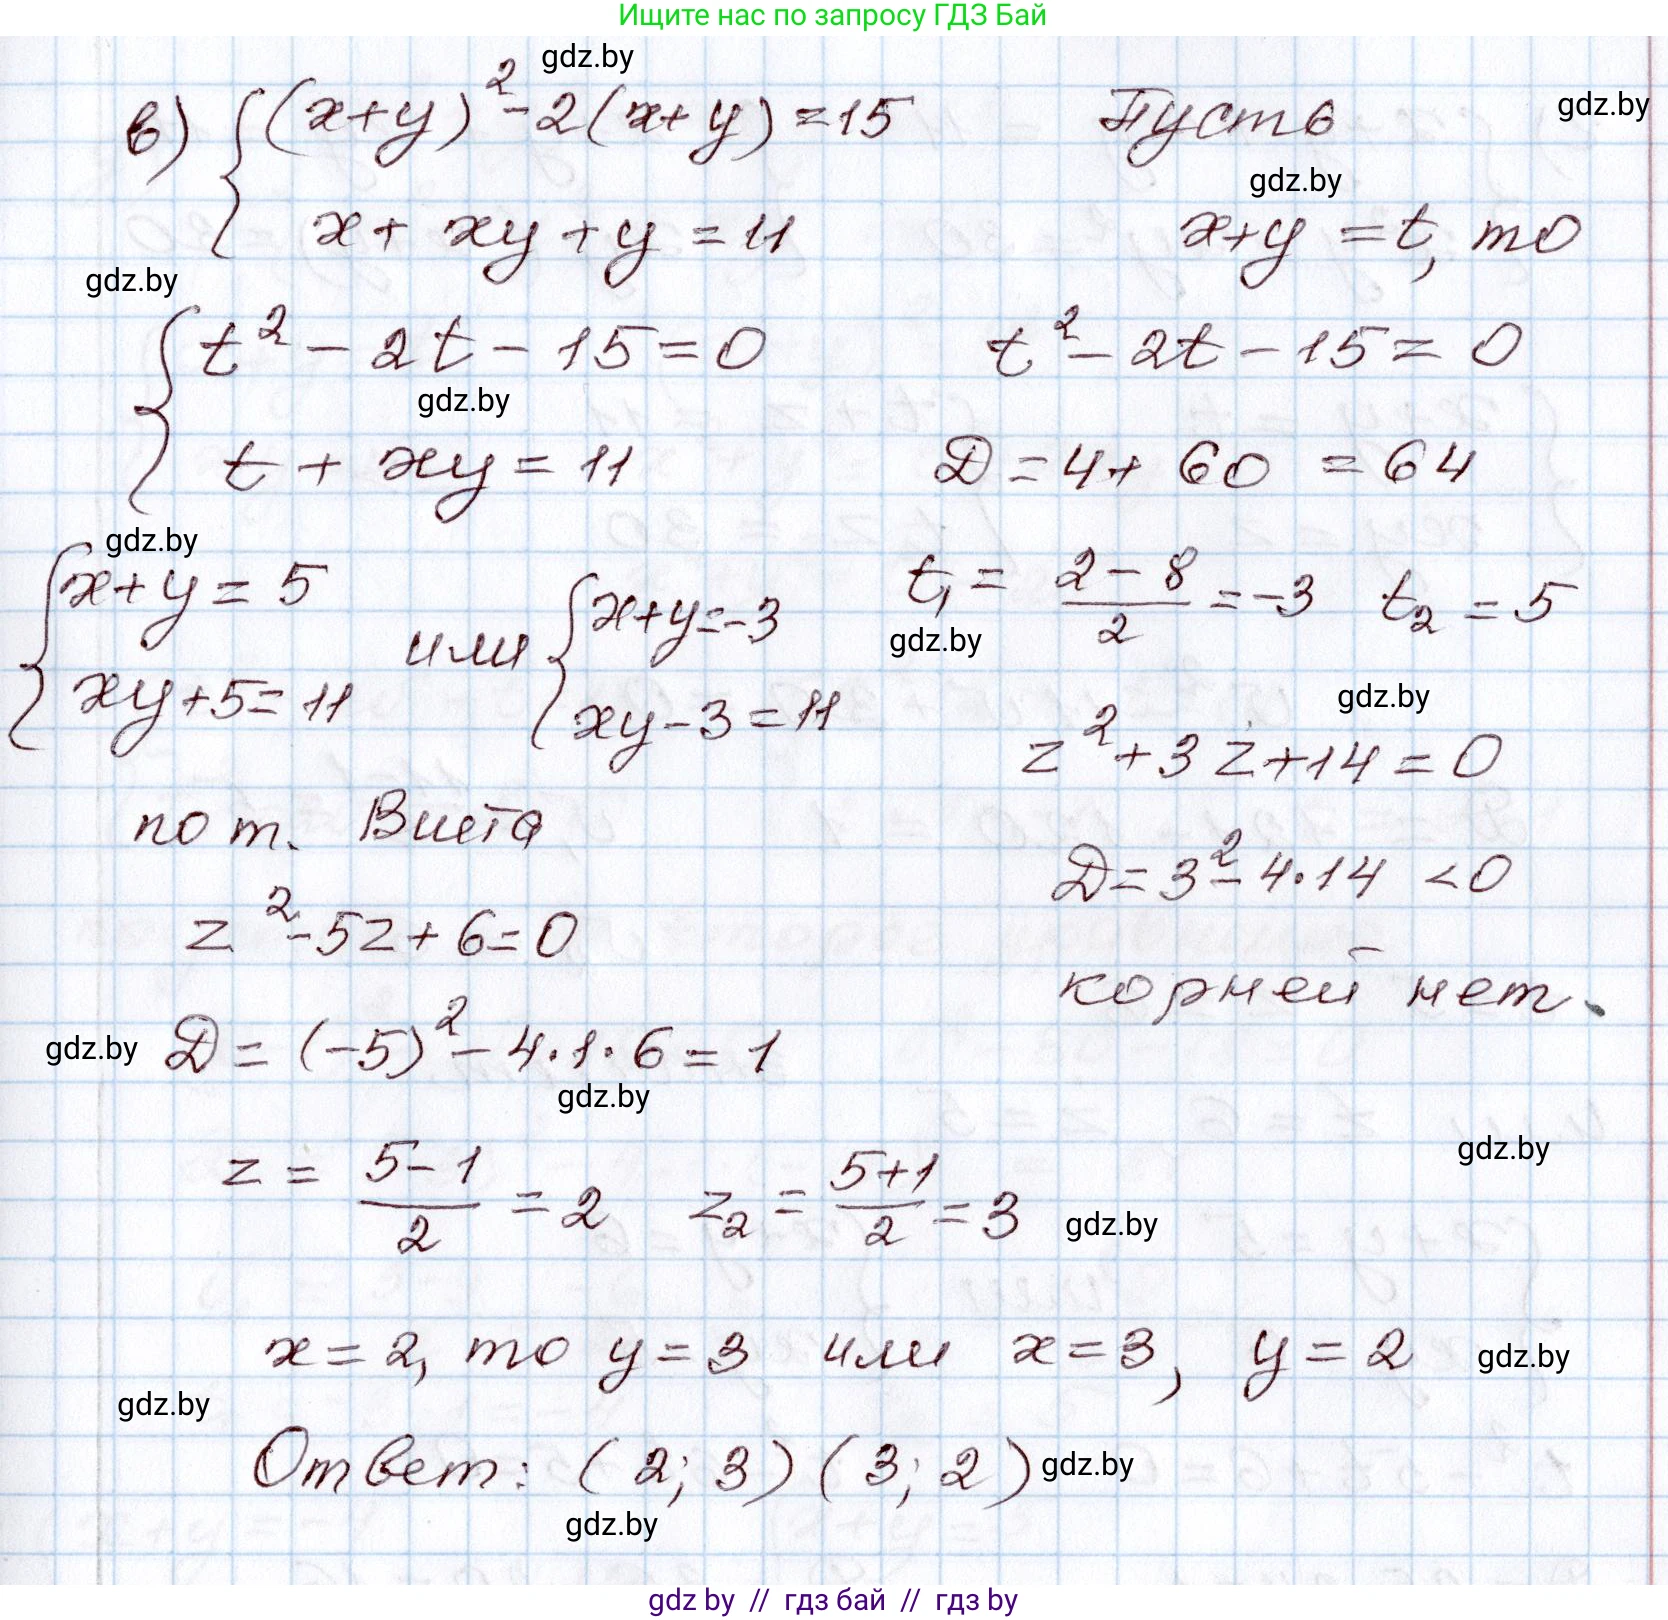 Ищите нас по запросу ГДЗ Бай
gdz.by
в) { (x+y)² - 2(x+y) = 15 Пусть gdz.by
gdz.by
x + xy + y = 11 x+y = t, то
gdz.by
{ t² - 2t - 15 = 0 t² - 2t - 15 = 0
gdz.by
t + xy = 11 D = 4 + 60 = 64
gdz.by
{ x+y = 5 или { x+y = -3 t₁ = (2-8)/2 = -3 t₂ = 5
gdz.by
xy+5 = 11 xy-3 = 11 gdz.by
z² + 3z + 14 = 0
по т. Виета
D = 3² - 4·14 < 0
z² - 5z + 6 = 0
корней нет.
gdz.by D = (-5)² - 4·1·6 = 1
gdz.by
gdz.by
z = (5-1)/2 = 2 z₂ = (5+1)/2 = 3 gdz.by
x = 2, то y = 3 или x = 3, y = 2 gdz.by
gdz.by
Ответ: (2; 3) (3; 2) gdz.by
gdz.by
gdz by // гдз бай // гдз by